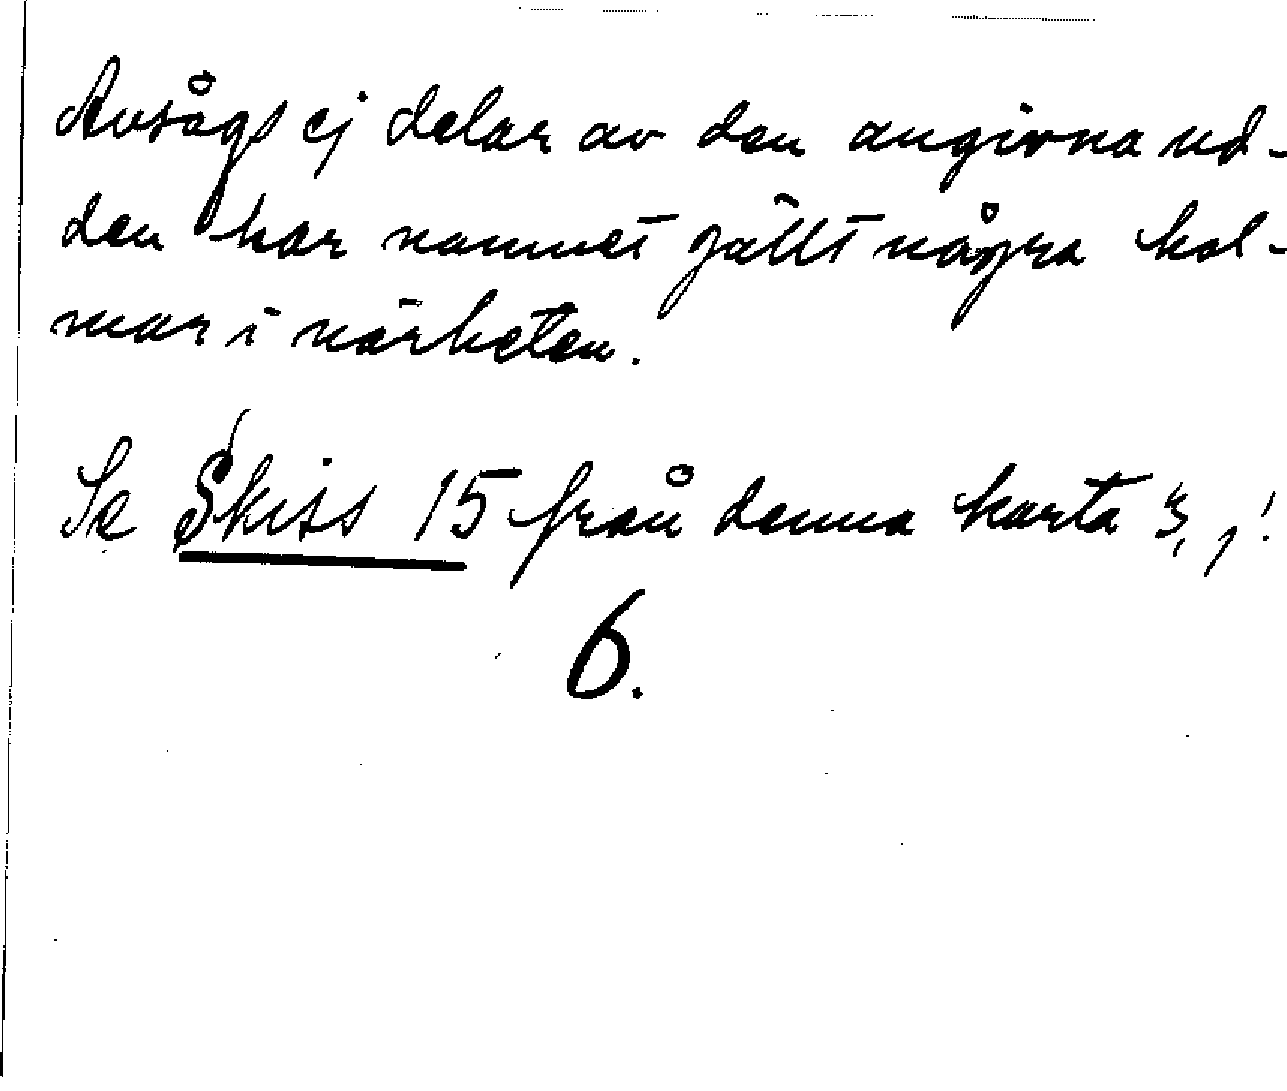 Avsågs ej delar av den angivna ud-
den har namnet gällt några hol-
mar i närheten.
Se Skiss 15 från denna karta !
6.